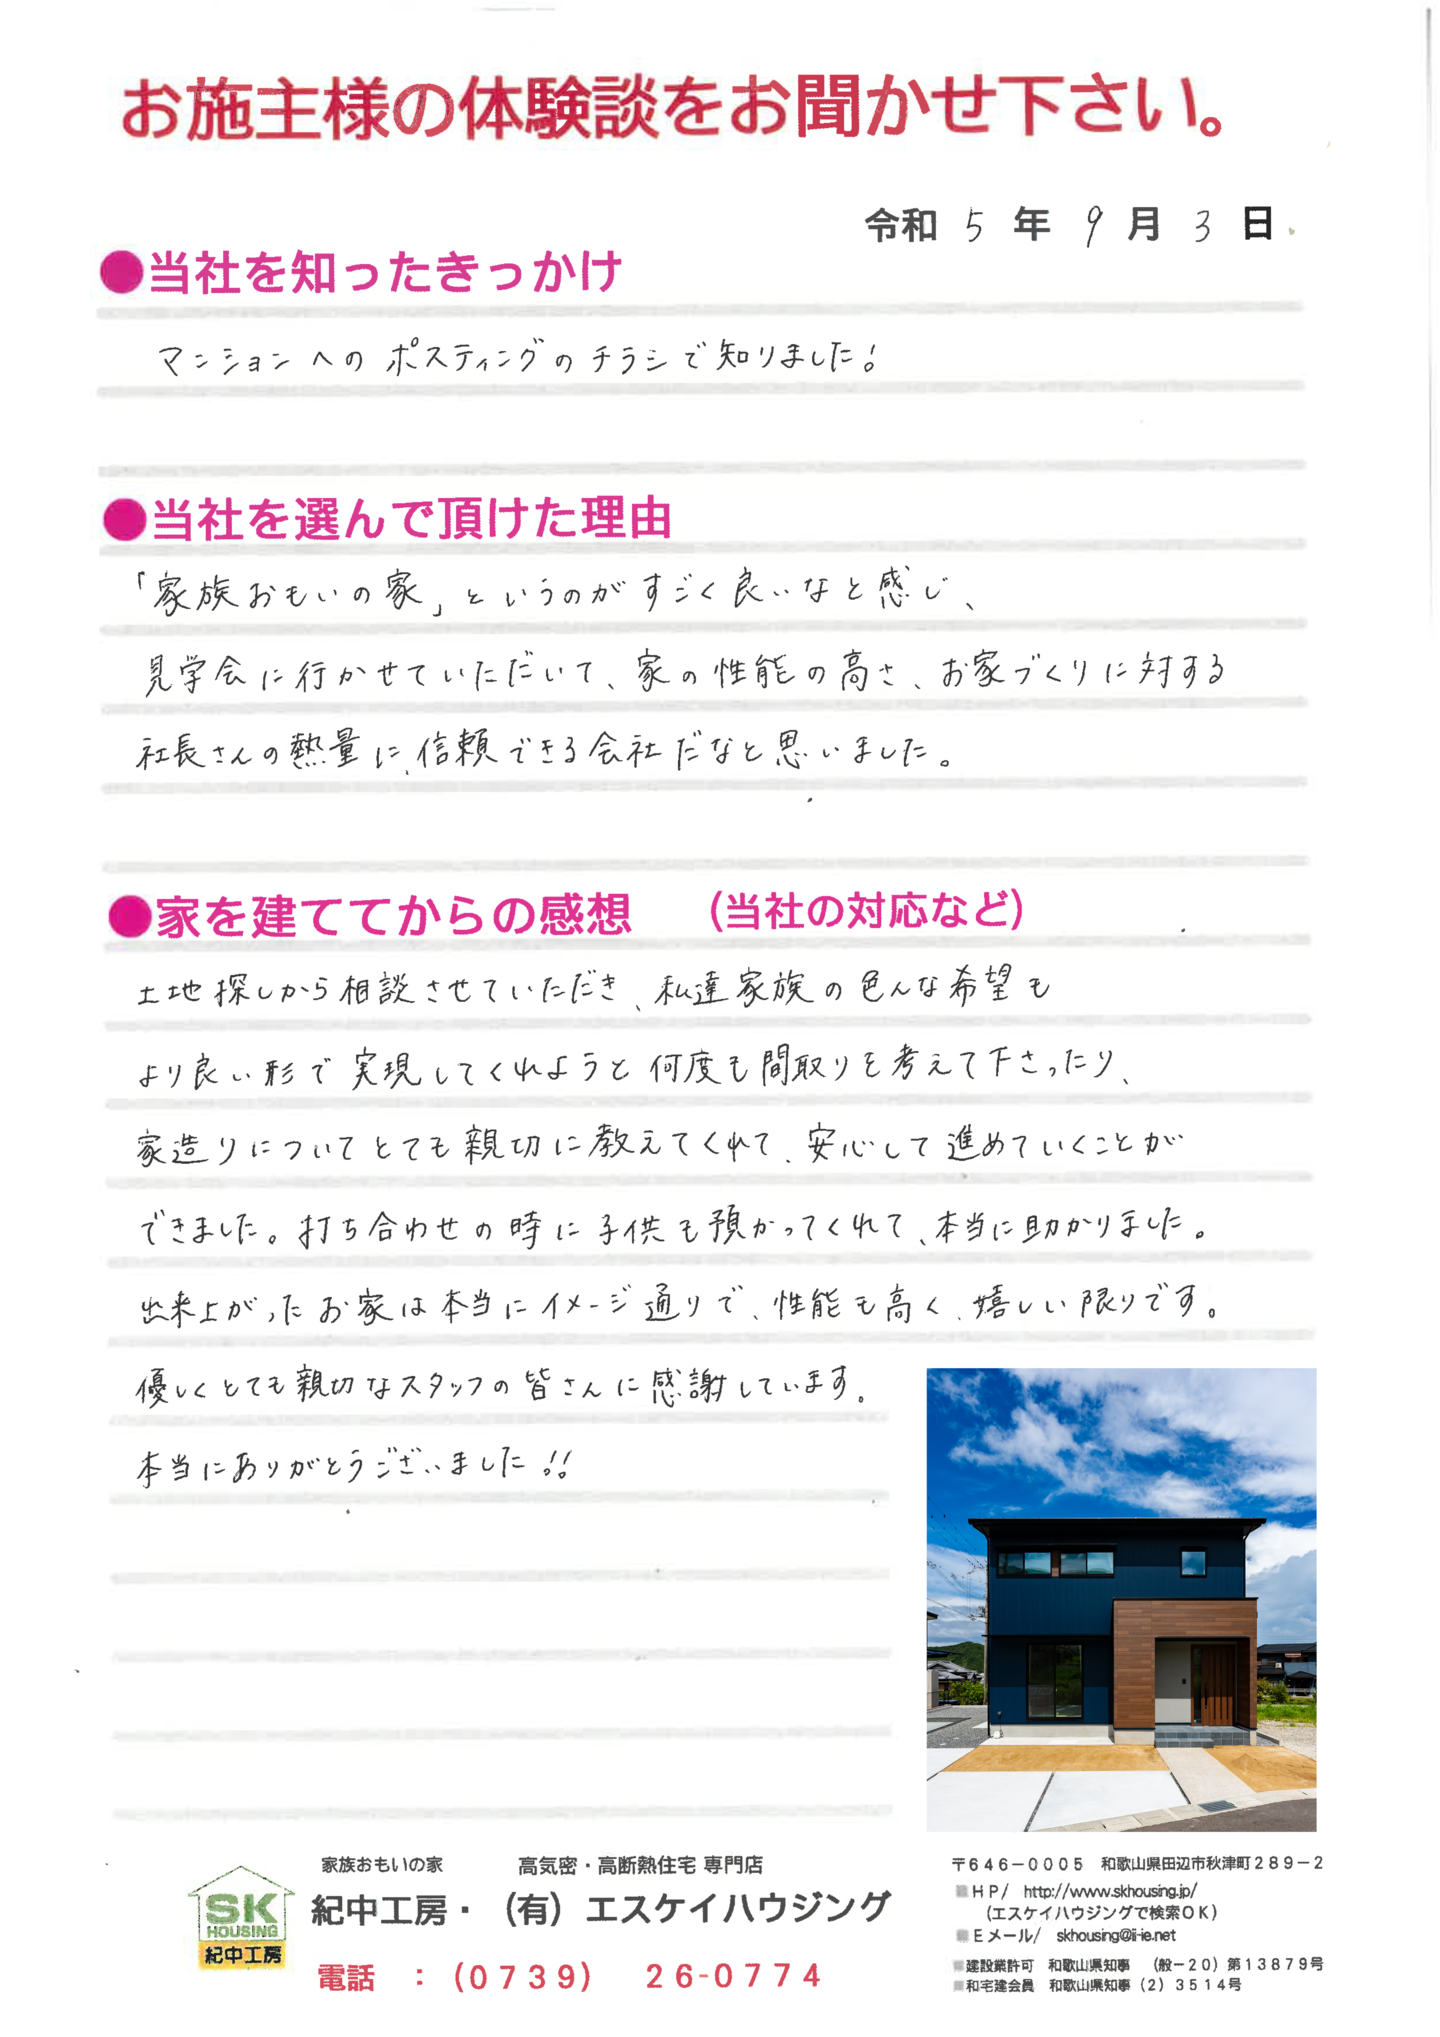 お施主様の体験談をお聞かせ下さい。
令和 5 年 9 月 3 日
●当社を知ったきっかけ
マンションへのポスティングのチラシで知りました!
●当社を選んで頂けた理由
「家族おもいの家」というのがすごく良いなと感じ、
見学会に行かせていただいて、家の性能の高さ、お家づくりに対する
社長さんの熱量に、信頼できる会社だなと思いました。
●家を建ててからの感想 (当社の対応など)
土地探しから相談させていただき、私達家族の色んな希望も
より良い形で実現してくれようと何度も間取りを考えて下さったり、
家造りについてとても親切に教えてくれて、安心して進めていくことが
できました。打ち合わせの時に子供も預かってくれて、本当に助かりました。
出来上がったお家は本当にイメージ通りで、性能も高く、嬉しい限りです。
優しくとても親切なスタッフの皆さんに感謝しています。
本当にありがとうございました!!
SK
HOUSING
紀中工房
家族おもいの家 高気密・高断熱住宅 専門店
紀中工房・(有)エスケイハウジング
電話 :(0739) 26-0774
〒646-0005 和歌山県田辺市秋津町289-2
HP/ http://www.skhousing.jp/
(エスケイハウジングで検索OK)
Eメール/ skhousing@ii-ie.net
建設業許可 和歌山県知事 (般-20)第13879号
和宅建会員 和歌山県知事(2)3514号